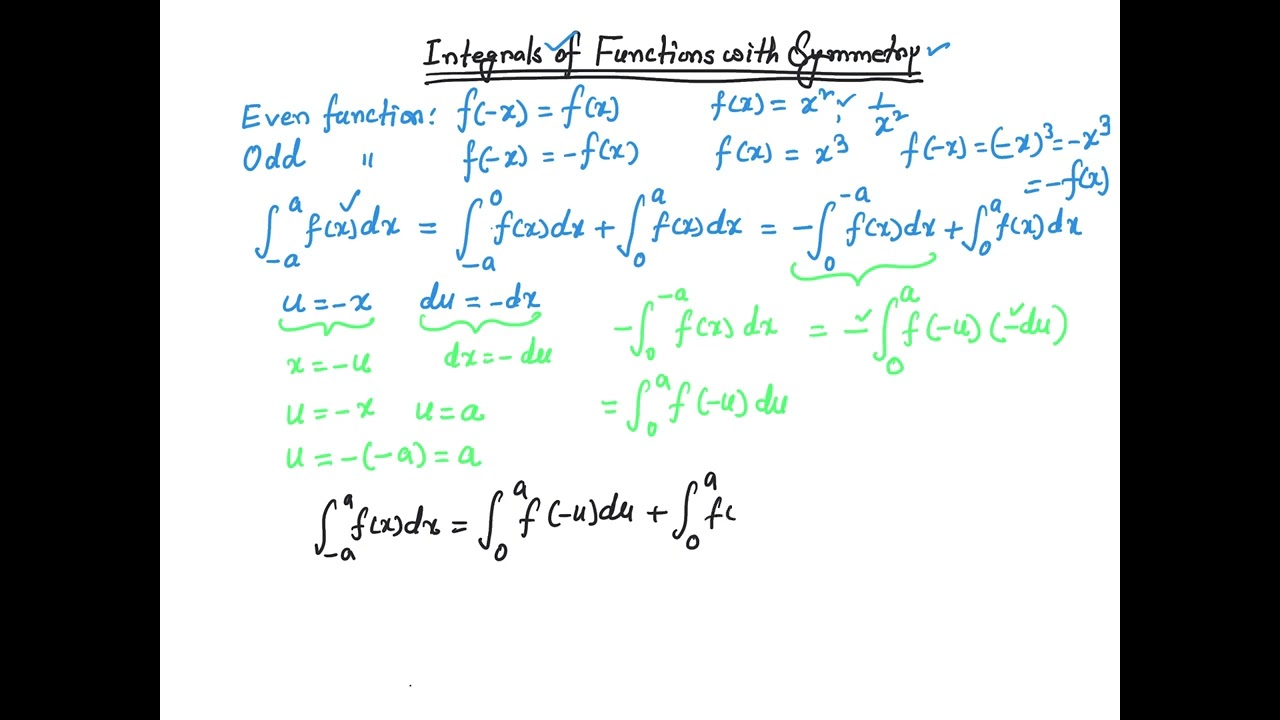 Integrals of Functions with Symmetry
Even function: f(-x) = f(x) f(x) = x², 1/x²
Odd " f(-x) = -f(x) f(x) = x³ f(-x) = (-x)³ = -x³
= -f(x)
∫_{-a}^{a} f(x)dx = ∫_{-a}^{0} f(x)dx + ∫_{0}^{a} f(x)dx = -∫_{0}^{-a} f(x)dx + ∫_{0}^{a} f(x)dx
u = -x du = -dx -∫_{0}^{-a} f(x)dx = -∫_{0}^{a} f(-u)(-du)
x = -u dx = -du
u = -x u = a = ∫_{0}^{a} f(-u)du
u = -(-a) = a
∫_{-a}^{a} f(x)dx = ∫_{0}^{a} f(-u)du + ∫_{0}^{a} f(